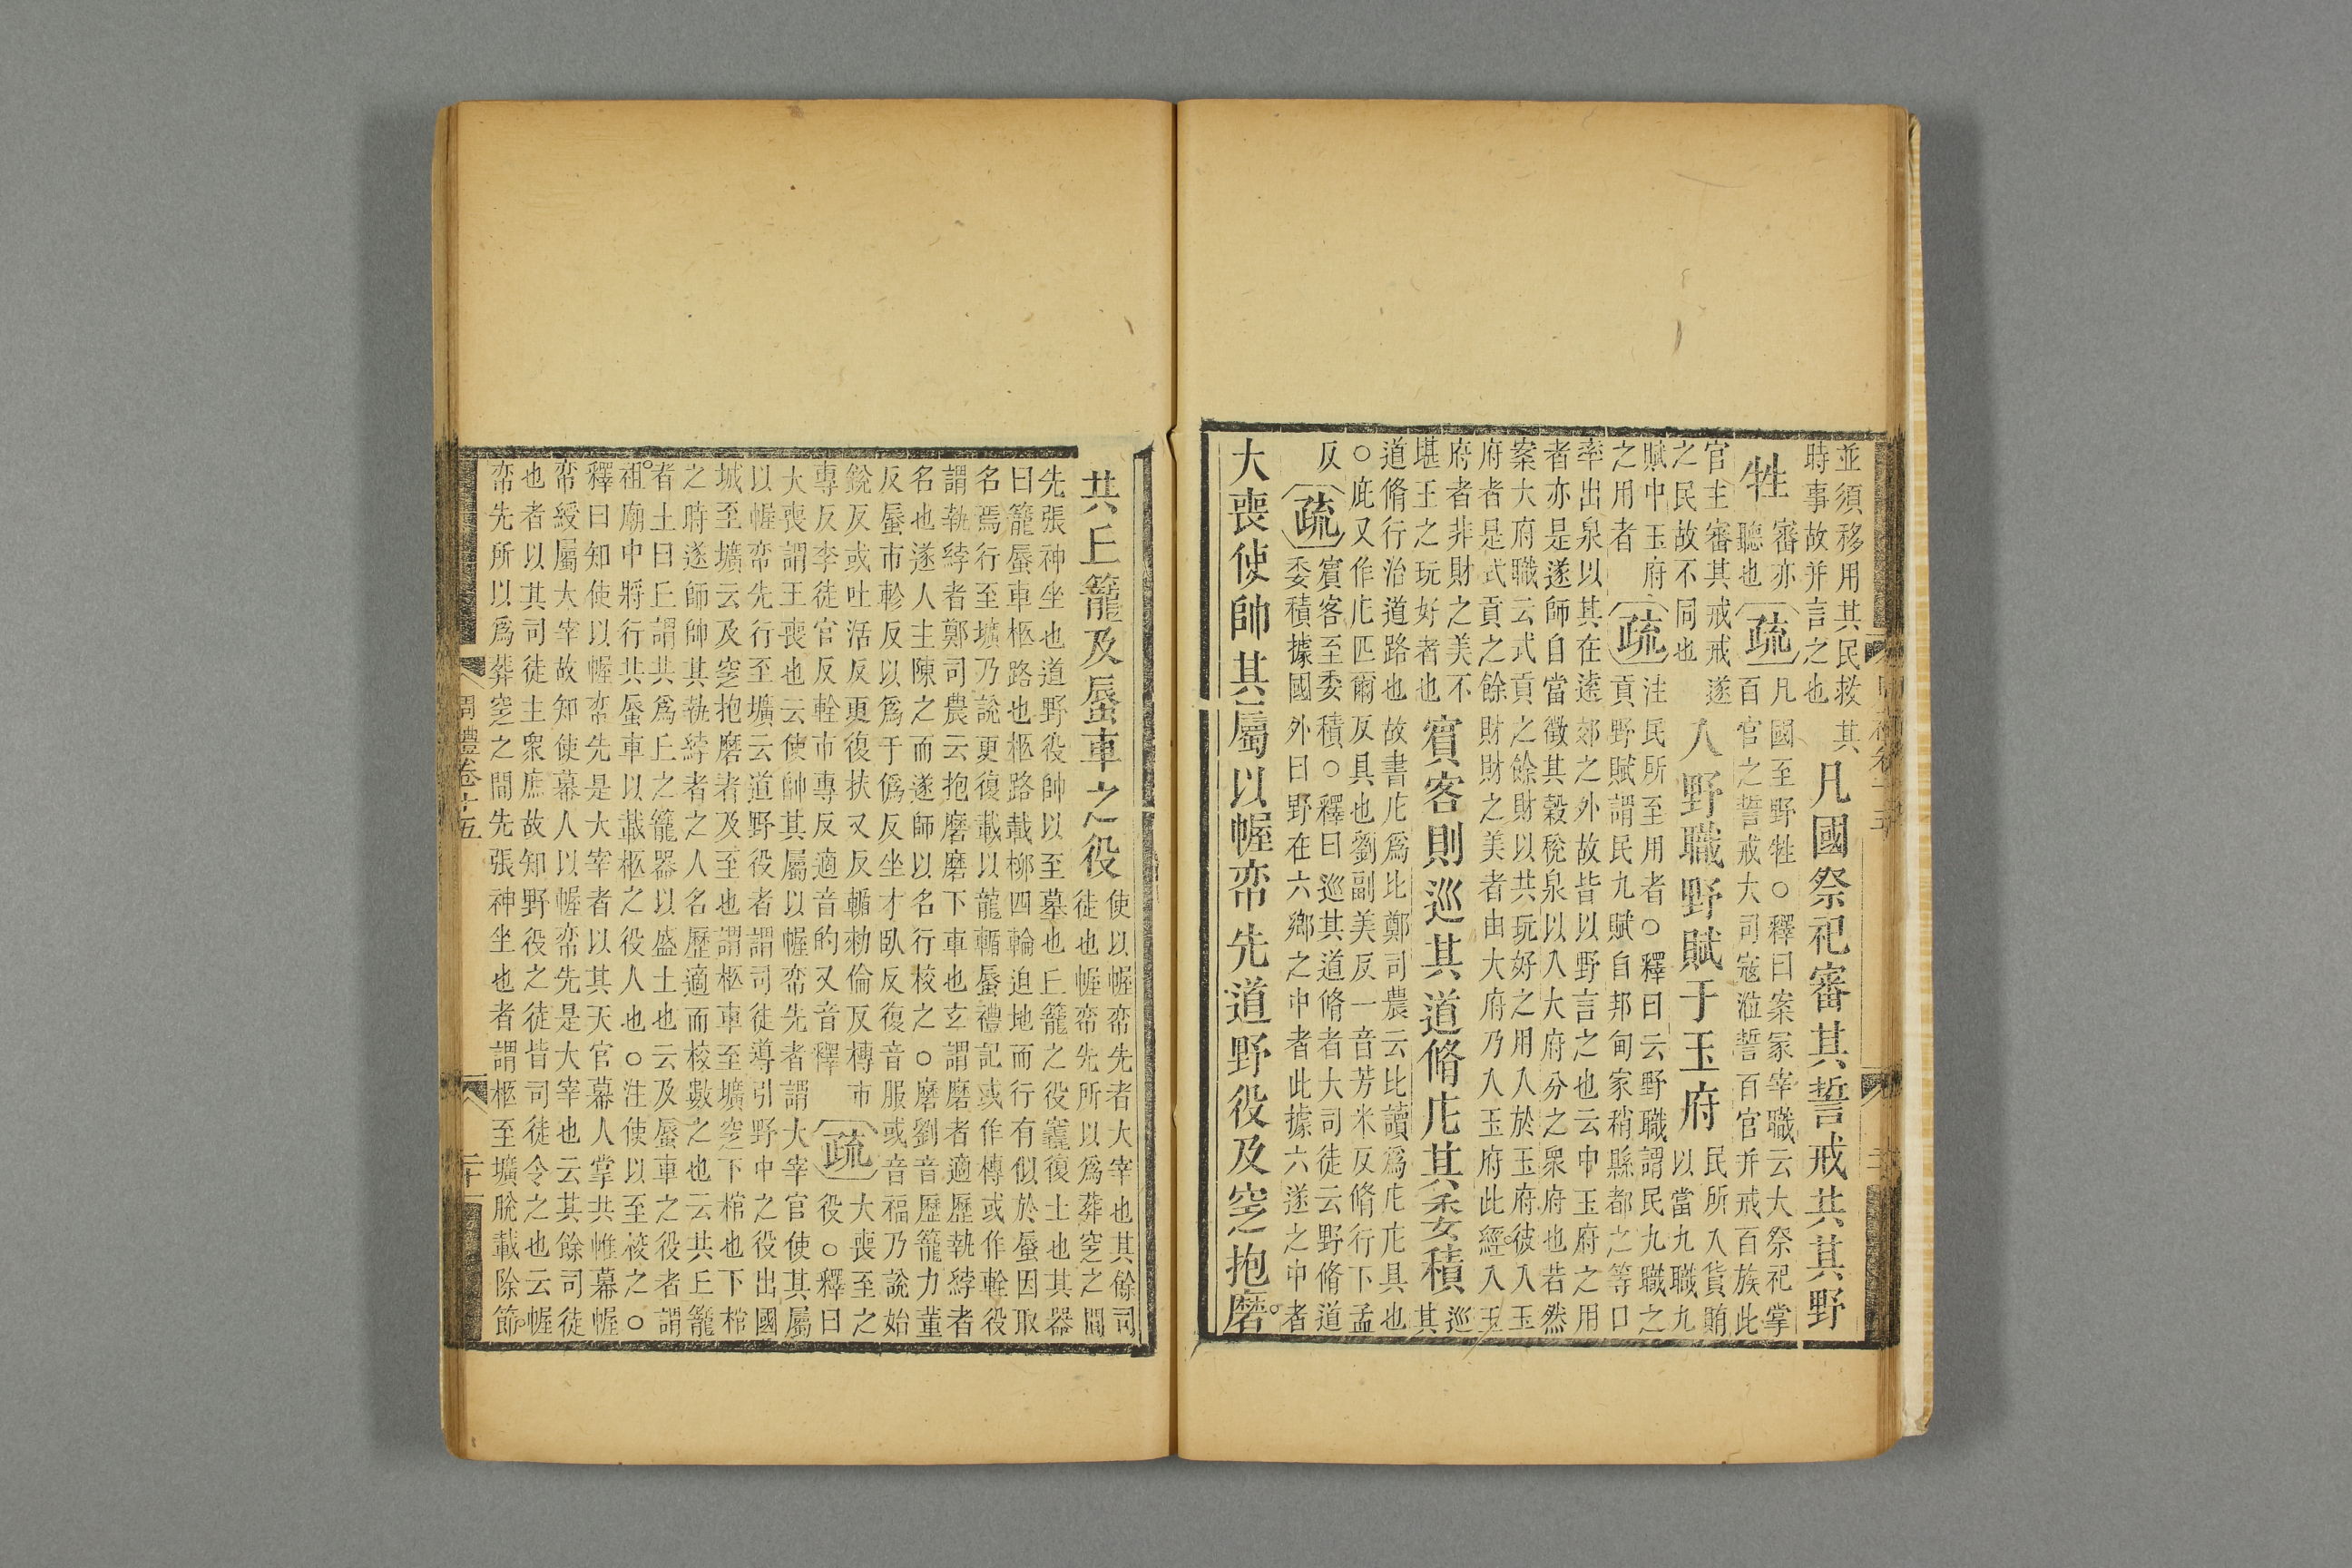 並須移用其民救其
時事故并言之也
凡國祭祀審其誓戒共其野
牲
審亦
聽也
疏
凡國至野牲○釋曰案冢宰職云大祭祀掌
百官之誓戒大司寇涖誓百官并戒百族此
官主審其戒戒遂
之民故不同也
入野職野賦于玉府
民所入貨賄
以當九職九
賦中玉府
之用者
疏
注民所至用者○釋曰云野職謂民九職之
貢野賦謂民九賦自邦甸家稍縣都之等口
率出泉以其在逺郊之外故皆以野言之也云中玉府之用
者亦是遂師自當徵其穀稅泉以入大府分之衆府也若然
案大府職云式貢之餘財以共玩好之用入於玉府彼入玉
府者是式貢之餘財財之美者由大府乃入玉府此經入玉
府者非財之美不
堪王之玩好者也
賓客則巡其道脩庀其委積
巡
其
道脩行治道路也故書庀爲比鄭司農云比讀爲庀庀具也
○庇又作庀匹爾反具也劉副美反一音芳米反脩行下孟
反
疏
賓客至委積○釋曰巡其道脩者大司徒云野脩道
委積據國外曰野在六鄉之中者此據六遂之中者
大喪使帥其屬以幄帟先道野役及窆抱磨
共丘籠及蜃車之役
使以幄帟先者大宰也其餘司
徒也幄帟先所以爲葬窆之間
先張神坐也道野役帥以至墓也丘籠之役竁復土也其器
曰籠蜃車柩路也柩路載柳四輪迫地而行有似於蜃因取
名焉行至壙乃說更復載以龍輴蜃禮記或作槫或作輇役
謂執綍者鄭司農云抱磨磨下車也玄謂磨者適歷執綍者
名也遂人主陳之而遂師以名行校之○磨劉音歷籠力董
反蜃市軫反以爲于僞反坐才臥反復音服或音福乃說始
銳反或吐活反更復扶又反輴勑倫反槫市
專反李徒官反輇市專反適音的又音釋
疏
大喪至之
役○釋曰
大喪謂王喪也云使帥其屬以幄帟先者謂大宰官使其屬
以幄帟先行至壙云道野役者謂司徒導引野中之役出國
城至壙云及窆抱磨者及至也謂柩車至壙窆下棺也下棺
之時遂師帥其執綍者之人名歷適而校數之也云共丘籠
者土曰丘謂共爲丘之籠器以盛土也云及蜃車之役者謂
祖廟中將行共蜃車以載柩之役人也○注使以至校之○
釋曰知使以幄帟先是大宰者以其天官幕人掌共帷幕幄
帟綬屬大宰故知使幕人以幄帟先是大宰也云其餘司徒
也者以其司徒主衆庶故知野役之徒皆司徒令之也云幄
帟先所以爲葬窆之間先張神坐也者謂柩至壙脫載除節
周禮卷十五